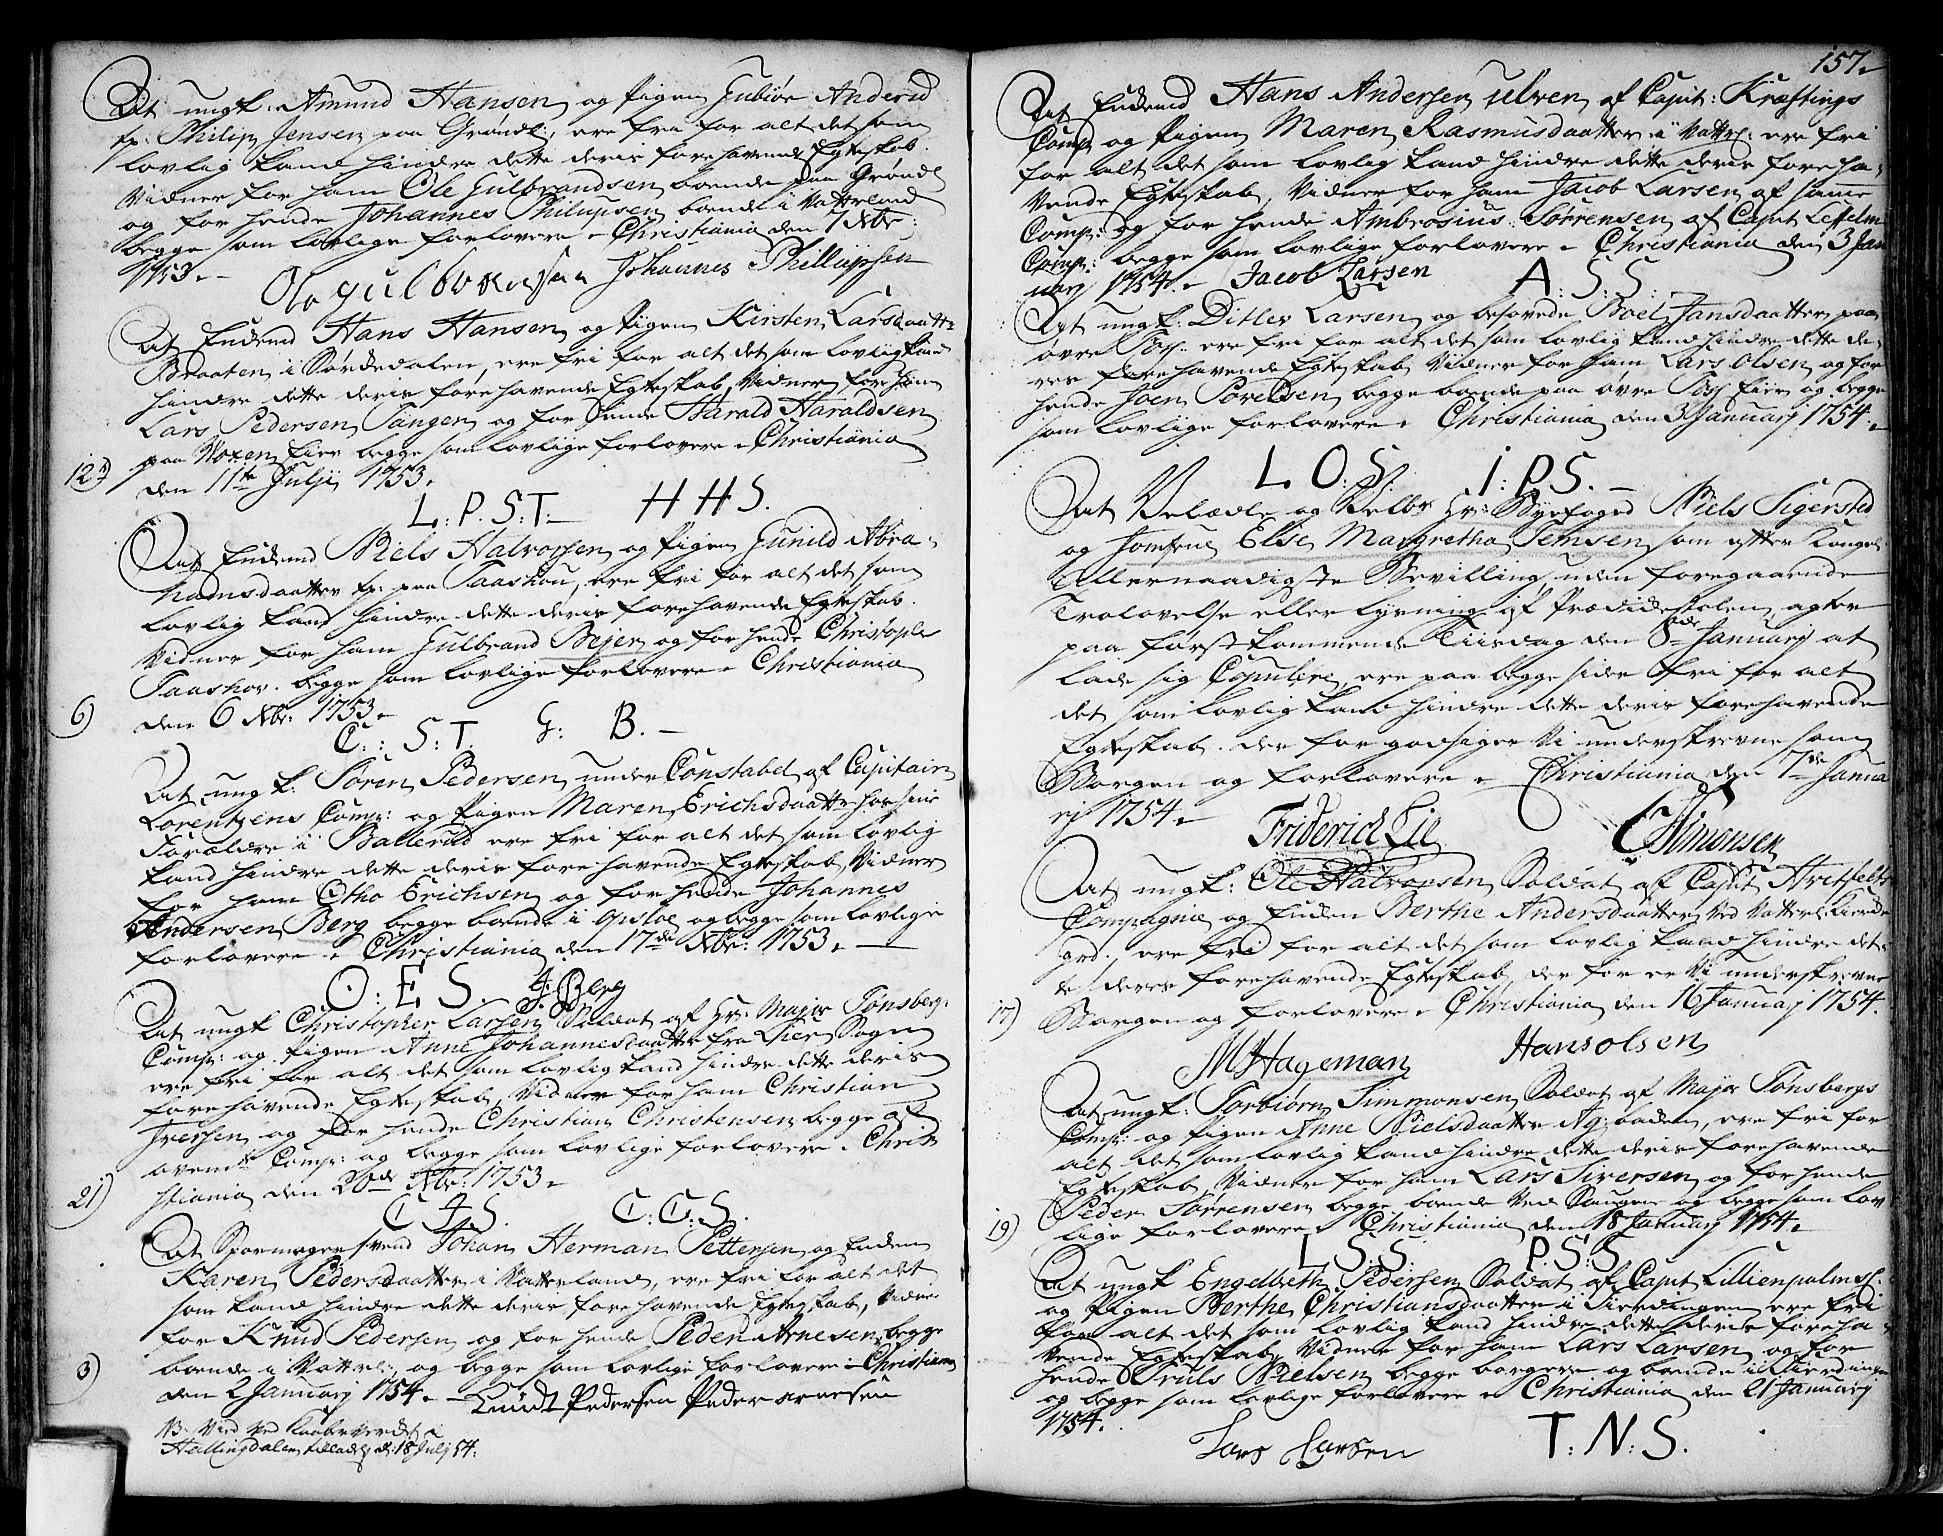 At ungk: Amund Hansen og Pigen Gubiør Anderud
fr: Philip Jensen paa Grøndl:, ere fri for alt det som
lovlig kand hindre dette deris forehavende Egteskab.
Vidner for ham Ole Gulbrandsen boende paa Grøndl
og for hende Johannes Philupsen boende i Vatterland
begge som lovlige forlovere. Christiania den 7 Xbr:
1753.
Ole gulbransen Johannes Phillipsen
At Enkemd Hans Hansen og Pigen Kirsten Larsdaatt:
Braaten i Sørkedalen, ere fri for alt det som lovlig kand
hindre dette deris forehavende Egteskab, Vidner for ham
Lars Pedersen Tangen og for hende Harald Haraldsen
paa Voxen Eier begge som lovlige forlovere. Christiania
12)
den 11te Julji 1753.
L:P.S:T. H H S.
At Enkemd Niels Halvorsen og Pigen Gunild Abra-
hamsdaatter fr: paa Taashou, ere fri for alt det som
lovlig kand hindre dette deris forehavende Egteskab.
Vidner for ham Gulbrand Bejer og for hende Christopher
Taashov. begge som lovlige forlovere. Christiania
6)
den 6 Xbr: 1753.
C: S:T. G: B.
At ungk: Søren Pedersen under Constabel af Capitain
Lorentzens Comp: og Pigen Maren Erichsdaatter hos sine
Forældre i Ballerud ere fri for alt det som lovlig
kand hindre dette deris forehavende Egteskab, Vidner
for ham Otho Erichsen og for hende Johannes
Andersen Berg begge boende i Opsloe og begge som lovlige
forlovere. Christiania den 17de Xbr: 1753.
O:E S. J:Berg
At ungk Christopher Larsen Soldat af Hr: Major Tønsberg:
Comp: og Pigen Anne Johannesdaatter fra Lier Sogn
ere fri for alt det som lovlig kand hindre dette deris
forehavende Egteskab, Vidner for ham Christian
Iversen og for hende Christian Christensen begge af
ovenmte Comp: og begge som lovlige forlovere. Chri-
21)
stiania den 20de Xbr: 1753.
C I S. C:C:S.
At Spormagersvend Johan Herman Pettersen og Enken
Karen Pedersdaatter i Vatterland, ere fri for alt det
som kand hindre dette deris forehavende Egteskab, Vidner
for Knud Pedersen og for hende Peder Arnesen begge
boende i Vattrl: og begge som lovlige forlovere. Christiania
3)
den 2 January 1754. Knudt Pedersen Peder arnesen
NB. Vied ved Kaaberverket i
Hallingdalen d: 18 Julj 54.
157.
At Enkemd Hans Andersen Ulven af Capit: Kræftings
Comp: og Pigen Maren Rasmusdaatter i Vattrl: ere fri
for alt det som lovlig kand hindre dette deris foreha-
vende Egteskab, Vidner for ham Jacob Larsen af samme
Comp: og for hende Ambrosius Sørrensen af Capit
Comp: begge som lovlige forlovere. Christiania den 3 Jan
uarj 1754. Jacob Larsen A:S:S.
At ungk: Ditlev Larsen og besovede Boel Jansdaatter paa
øvre Foss: ere fri for alt det som lovlig kand hindre dette de-
res forehavende Egteskab Vidner for ham Lars Olsen og for
hende Joen Povelsen begge boende paa øvre Foss Eier og begge
som lovlige forlovere. Christiania den 3 January 1754.
L.O:S: I:P S.
At Velædle og Velbr Hr: Byefoged Niels Sigersted
og Jomfrue Else Margretha Jemsen som efter Kongel:
Allernaadigste Bevilling, uden foregaaende
Trolovelse eller Lysning af Prædikestolen agter
paa førstkommende Tiirsdag den 8de January at
lade sig Copulere, ere paa begge sider fri for alt
det som lovlig kand hindre dette deris forehavende
Egteskab. der for godsiger Vi underskrevne som
Borgen og forlovere. Christiania den 7de Janua
rij 1754.
Friderich Lie CSimonsen
At ungk: Ole Halvorsen Soldat af Capit Hvitfelts
Compagnie og Enken Berthe Andersdaatter ved Vatterl: Kirke
grd. ere fri for alt det som lovlig kand hindre det-
te deres forehavende Egteskab, der for er Vi underskrevne
17)
Borgen og forlovere. Christiania den 16 January 1754.
MHageman Hans olsen
At ungk: Torbiørn Simmonsen Soldat af Major Tønsbergs
Comp: og Pigen Anne Nielsdaatter Ag:aaden, ere fri for
alt det som lovlig kand hindre dette deris forehavende
Egteskab, Vidner for ham Lars Siversen og for hende
Peder Sørrensen begge boende ved Saugene og begge som lov
19)
lige forlovere. Christiania den 18 January 1754.
L S:S. P.S:S
At ungk Engelbreth Pedersen Soldat af Capit Lillienpalms C:
og Pigen Berthe Christiansdaatter i Fierdingen ere fri
for alt det som lovlig kand hindre dette deris foreha-
vende Egteskab, Vidner for ham Lars Larsen og for
hende Truls Nielsen begge borgere og boende i Fierdingen
og begge som lovlige forlovere. Christiania den 21 January
1754.
Lars Larsen T:N:S.